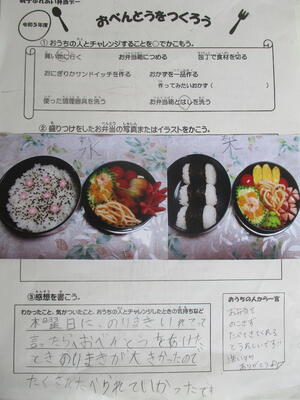 親子ふれあい弁当デー
令和5年度
おべんとうをつくろう
①おうちの人とチャレンジすることを○でかこもう。
買い物に行く　お弁当箱につめる　包丁で食材を切る
おにぎりかサンドイッチを作る　おかずを一品作る
作ってみたいおかず(　)
使った調理器具を洗う　お弁当箱とはしを洗う
②盛りつけをしたお弁当の写真またはイラストをかこう。
③感想を書こう。
わかったこと、気がついたこと、おうちの人とチャレンジしたときの気持ちなど
木曜日に、のりまきいれてって
言ったら、おべんとうをあけた
ときのりまきが大きかったので
たべられていかったです
おうちの人から一言
お弁当
のこさず
たべてきてくれる
とうれしいです!
ありがとう